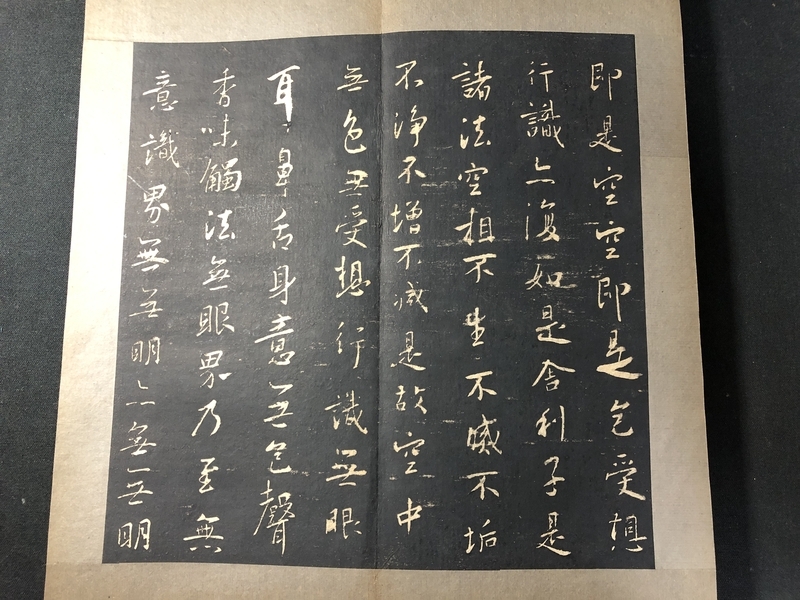 即是空空即是色受想
行識亦復如是舍利子是
諸法空相不生不滅不垢
不淨不增不減是故空中
無色無受想行識無眼
耳鼻舌身意無色聲
香味觸法無眼界乃至無
意識界無無明亦無無明